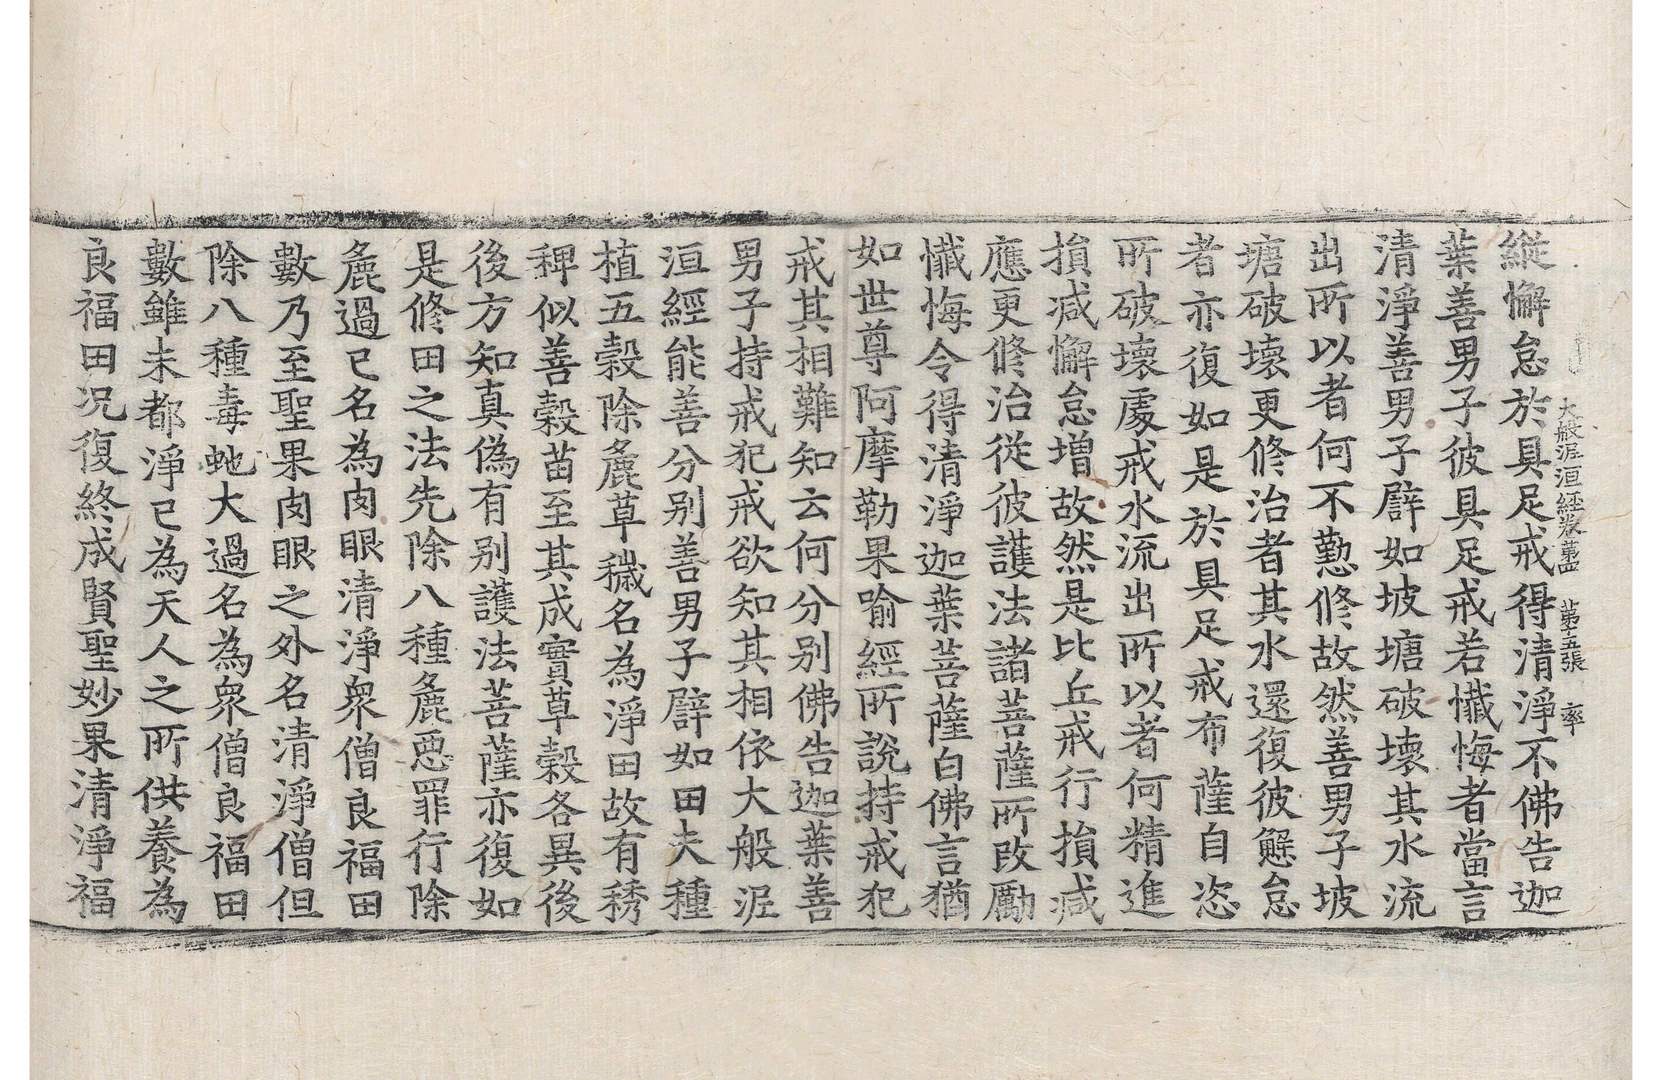 大般泥洹經卷第四 第十五張 率
縱懈怠於具足戒得清淨不佛告迦
葉善男子彼具足戒若懺悔者當言
清淨善男子譬如坡塘破壞其水流
出所以者何不懃修故然善男子坡
塘破壞更修治者其水還復彼懈怠
者亦復如是於具足戒布薩自恣
所破壞處戒水流出所以者何精進
損減懈怠增故然是比丘戒行損減
應更修治從彼護法諸菩薩所改勵
懺悔令得清淨迦葉菩薩白佛言猶
如世尊阿摩勒果喻經所說持戒犯
戒其相難知云何分別佛告迦葉善
男子持戒犯戒欲知其相依大般泥
洹經能善分別善男子譬如田夫種
植五穀除麁草穢名為淨田故有莠
稗似善穀苗至其成實草穀各異後
後方知真偽有別護法菩薩亦復如
是修田之法先除八種麁惡罪行除
麁過已名為肉眼清淨眾僧良福田
數乃至聖果肉眼之外名清淨僧但
除八種毒虵大過名為眾僧良福田
數雖未都淨已為天人之所供養為
良福田况復終成賢聖妙果清淨福